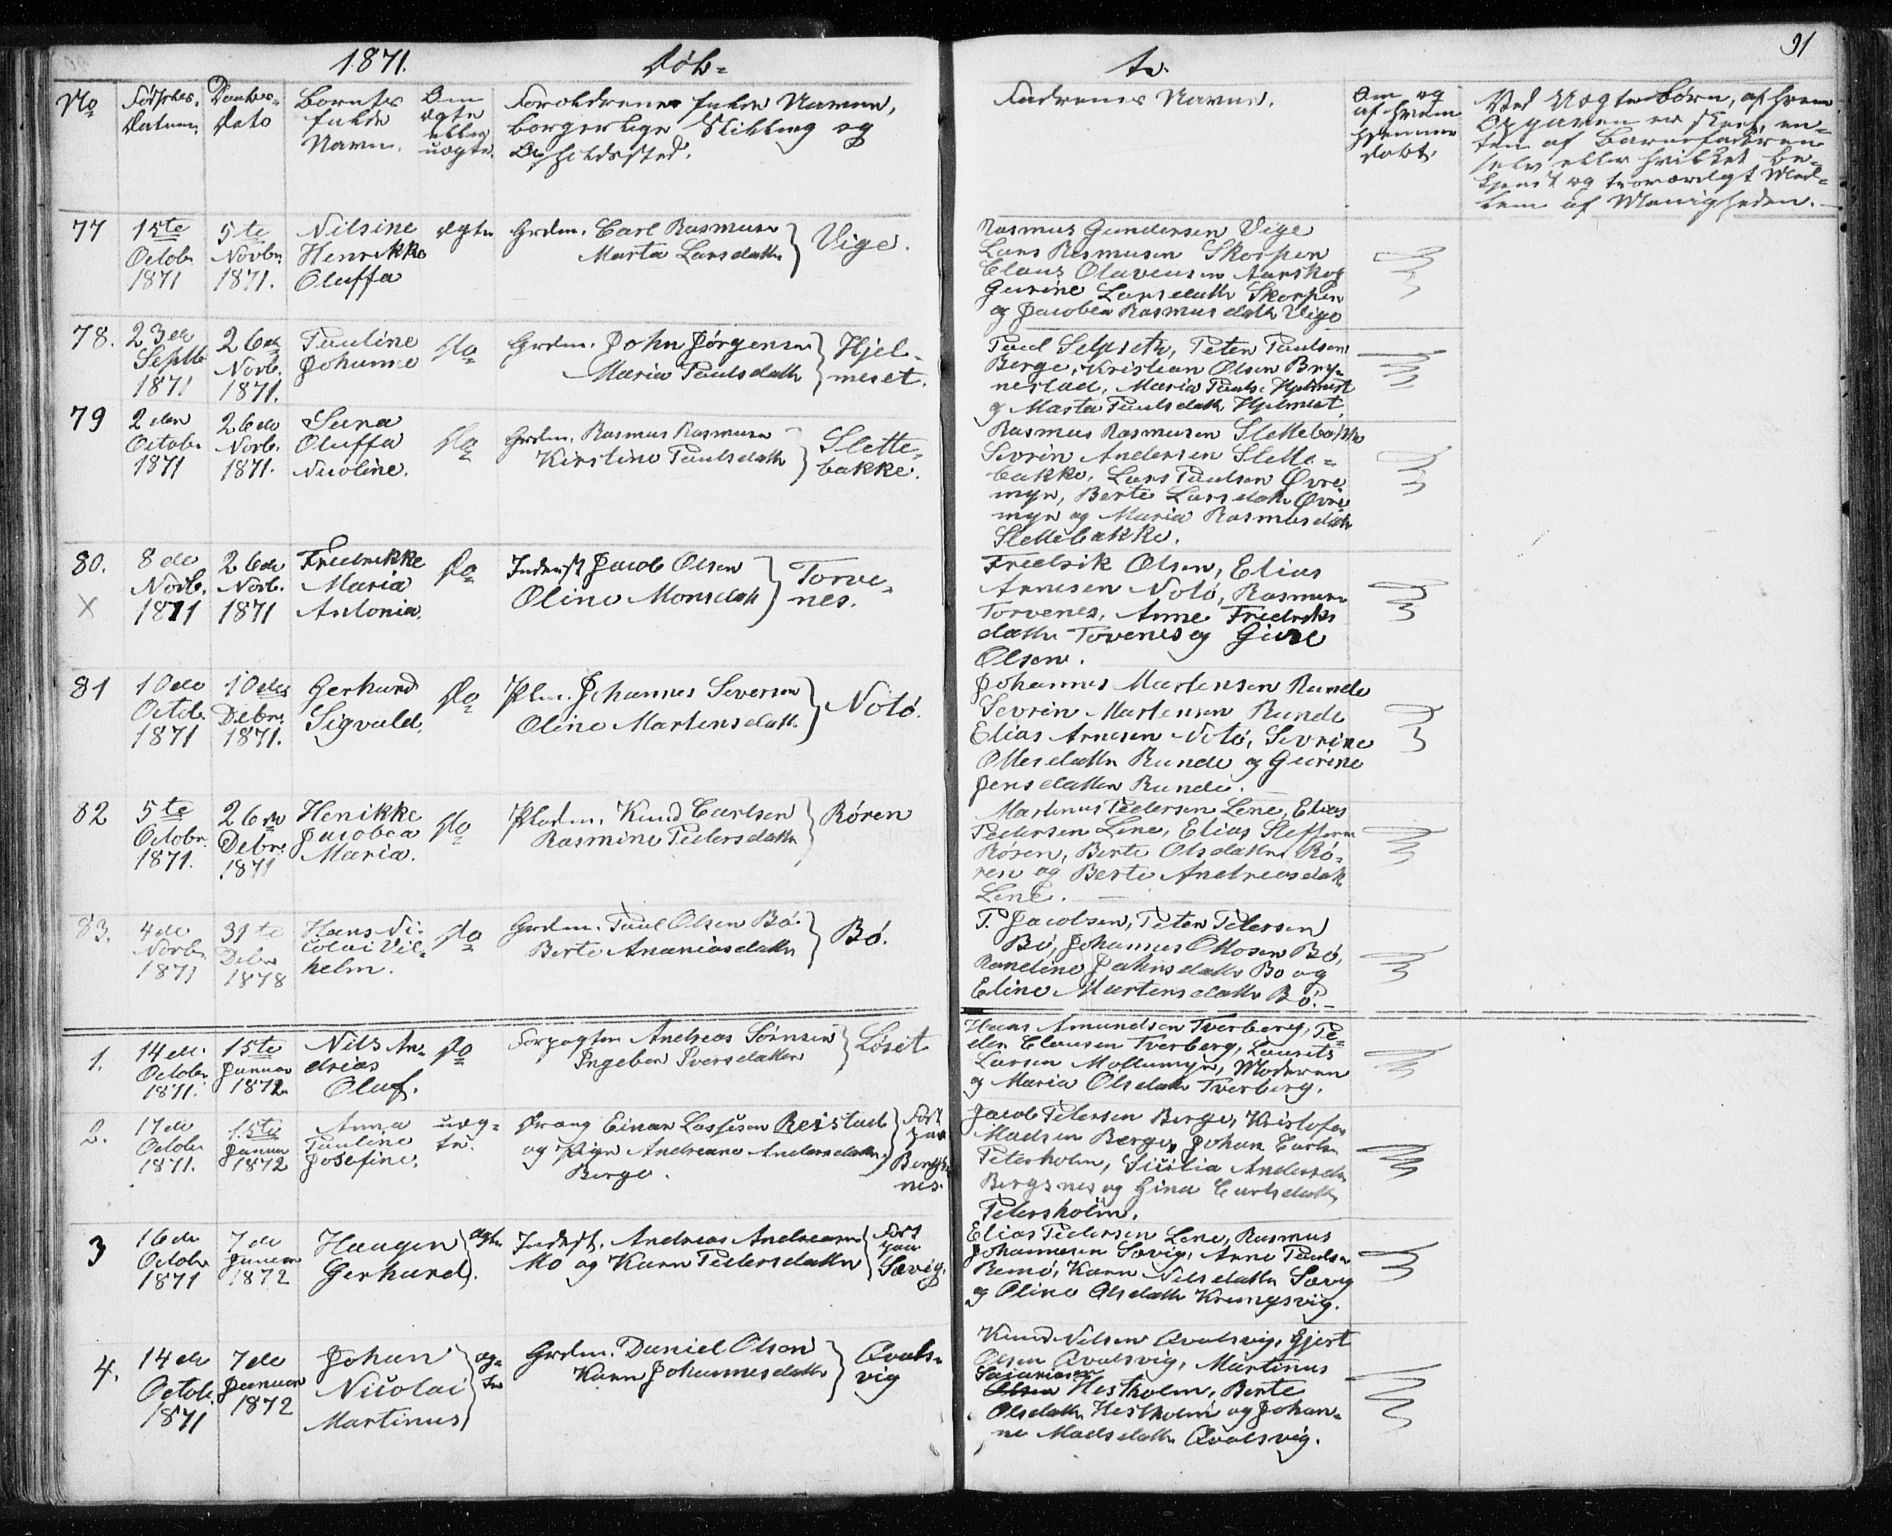 1871. Døb-
te. 91
No
Fødsels-
Datum,
Daabs-
Dato
Barnets
fulde
Navn.
Om
ægte
eller
uægte.
Forældrenes fulde Navne,
borgerlige Stilling og
Opholdssted.
Faddrenes Navne.
Om og
af hvem
hjemme
døbt.
Ved uægte Børn, af hvem
Opgaven er skeet, en-
ten af Barnefaderen
selv eller hvilket be-
kjendt og troværdigt Med-
lem af Menigheden.
77
15te
Octobr
1871
5te
Novbr
1871.
Nilsine
Henrikke
Oluffa
ægte
Grdm. Carl Rasmusen
Marta Larsdatter
Vige.
Rasmus Gundersen Vige
Lars Rasmusen Skorpen
Claus Olavensen Aarskog
Gurine Larsdatter Skorpen
og Jacobea Rasmusdatter Vige
78.
23de
Septbr
1871
26de
Novb.
1871.
Pauline
Johanne
Do
Grdm. John Jørgensen
Maria Paulsdatter
Hjel-
meset.
Paul Selseth, Peter Paulsen
Berge, Kristian Olsen Bry-
nestad, Maria Pauls. Hjelmeset
og Marta Paulsdatter Hjelmeset.
79
2den
Octobr
1871
26de
Novb.
1871.
Oluffa
Nicoline.
Do
Grdm. Rasmus Rasmusen
Kirstine Paulsdatter
Slette-
bakke.
Rasmus Rasmusen Slettebakke
Sevrin Andersen Slette-
bakke, Lars Paulsen Øvre
myr, Berte Larsdatter Øvre
myr og Maria Rasmusdatter
Slettebakke.
80.
X
8de
Novb.
1871
26de
Novb.
1871
Fredrikke
Maria
Antonia.
Do
Inderst Jacob Olsen
Oline Monsdatter
Torve-
nes.
Fredrik Olsen, Elias
Arnesen Notø, Rasmus
Torvenes, Anne Fredriks
datter Tovenes og
Olsen.
81
10de
Octob.
1871
10de
Debr.
1871.
Gerhard
Sigvald.
Do
Plm. Johannes Seversen
Oline Martensdatter
Notø.
Johannes Martensen Runde
Sevrin Martensen Runde
Elias Arnesen Notø, Sevrine
Ottesdatter Runde og Gurine
Jensdatter Runde.
82
5te
Octobr.
1871.
26de
Debr.
1871
Henikke
Jacobea
Maria.
Do
Pladm. Knud Carlsen
Rasmine Pedersdatter
Røren
Martinus Pedersen Lene, Elias
Pedersen Lene, Elias Steffensen
Røren, Berte Olsdatter Rø-
ren og Berte Andreasdatter
Lene.
83.
4de
Novbr.
1871
31te
Debr
1878
Hans Ni-
colai Vil-
helm.
Do
Grdm. Paul Olsen Bø.
Berte Ananiasdatter
Bø.
P. Jacobsen, Peter Petersen
Bø, Johannes Ottosen Bø,
Randine Jahnsdatter Bø og
Eline Martensdatter Bø.
1.
14de
Octobr
1871.
15te
Januar
1872
Nils An-
drias
Oluf.
Do
Forpagter Andreas Sørnsen
Ingebor Iversdatter
Løset
Hans Amundsen Tverberg, Pe-
der Clausen Tverberg, Laurits
Larsen Mollemyr, Moderen
og Maria Olsdatter Tverberg.
2.
17de
Octobr
1871.
15te
Januar
1872
Anna
Pauline
Josefine.
uæg-
te.
Dreng Einar Lassesen Reistad
og Pige Andreane Andersdatter
Berge.
Født
paa
Bergs-
nes.
Jacob Petersen Berge, Kristofer
Madsen Berge, Johan Carlsen
Petersholm, Sicilia Andersdr
Bergsnes og Gina Carlsdatter
Petersholm.
3
16de
Octobr
1871
7de
Januar
1872
Haagen
Gerhard.
ægte
Inderst. Andreas Andreasen
Mo og Karn Pedersdatter
Født
paa
Sævig.
Elias Pedersen Lene, Rasmus
Johannesen Sævig, Arne Paulsen
Remø, Karn Nilsdatter Sævig
og Oline Olsdatter
4.
14de
Octob.
1871
7de
Januar
1872
Johan
Nicolai
Martinus
æg-
te
Grdm. Daniel Olsen
Karn Johannesdatter
Qvals-
vig
Knud Nilsen Qvalsvig, Gjert
Olsen Qvalsvig, Martinus
Hestholm, Berte
Olsdatter Hestholm og Johan-
ne Madsdatter Qvalsvig.